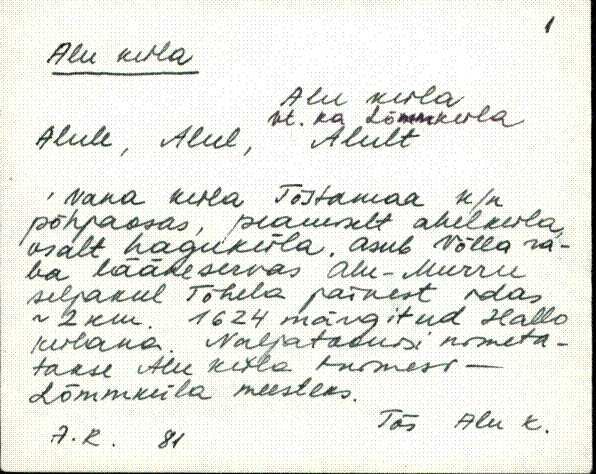 1
Alu küla
Alu küla
vt. ka Lõmmküla
Alule, Alul, Alult
Vana küla Tõstamaa k/n
põhjaosas, peamiselt ahelküla,
osalt haguküla. Asub Võlla ra-
ba lääneservas Alu-Murru
seljakul Tõhela järvest idas
~ 2 km. 1624 märgitud Hallo
külana. Naljatamisi nimeta-
takse Alu küla inimesi –
Lõmmküla meesteks.
Tõs Alu k.
A.R. 81